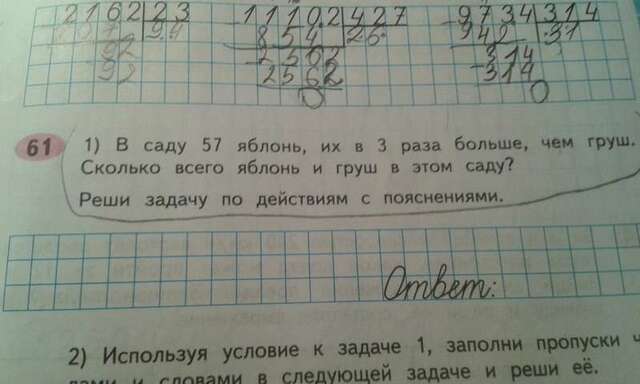 2162 23 11102 427 9734 314
207 94 854 26 942 31
92 2562 314
92 2562 314
0 0
61 1) В саду 57 яблонь, их в 3 раза больше, чем груш.
Сколько всего яблонь и груш в этом саду?
Реши задачу по действиям с пояснениями.
Ответ:
2) Используя условие к задаче 1, заполни пропуски
и словами в следующей задаче и реши её.